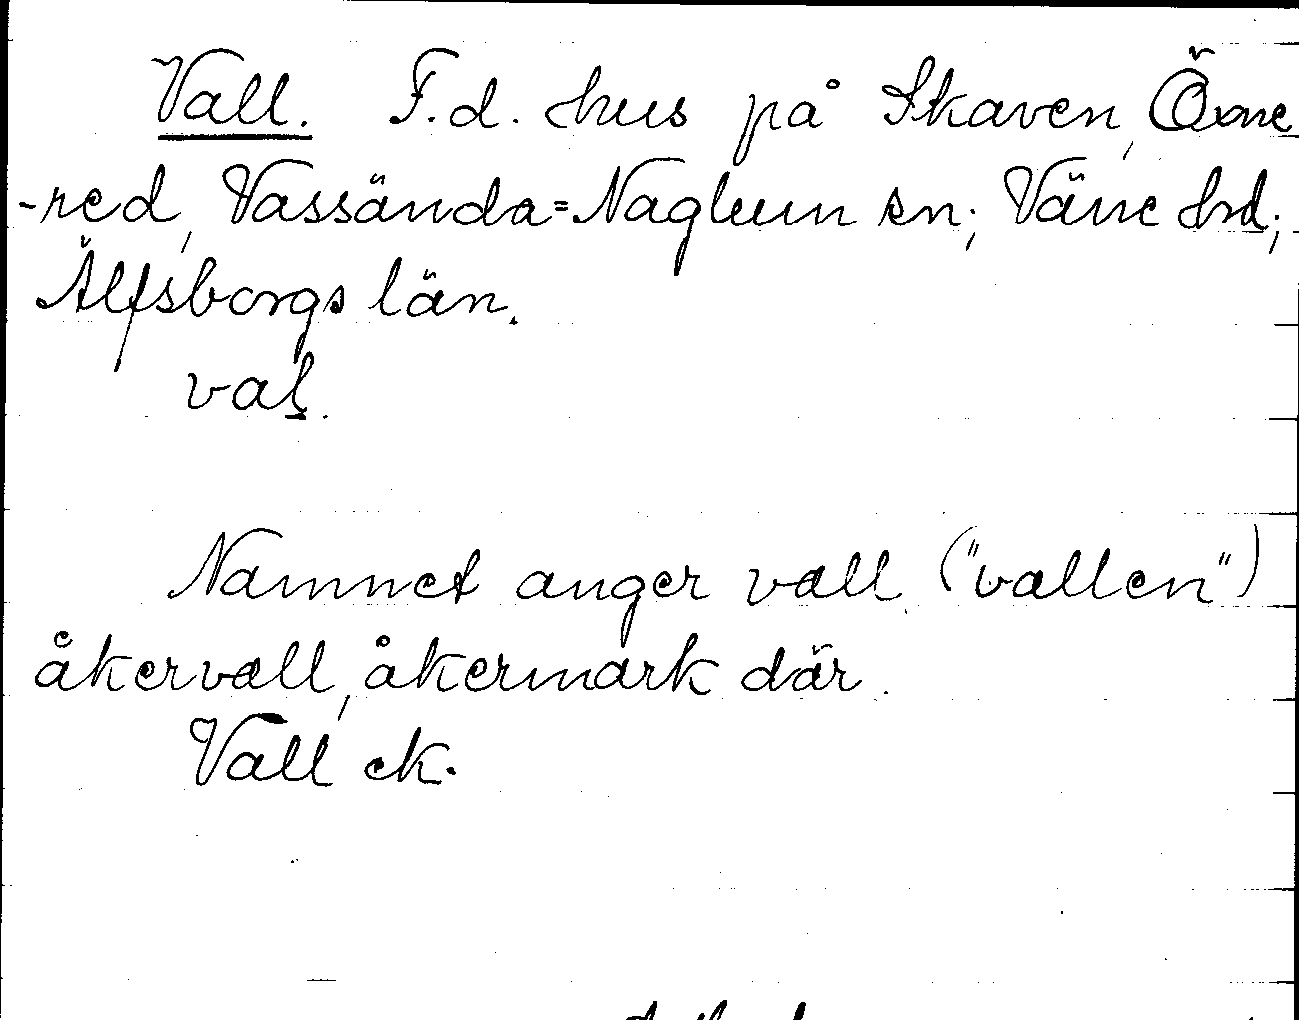 Vall. F.d. hus på Skaven, Öxne
-red, Vassända=Naglum sn; Väne hd;
Älfsborgs län.
val̲.
Namnet anger vall ("vallen")
åkervall, åkermark där.
Vall ek.